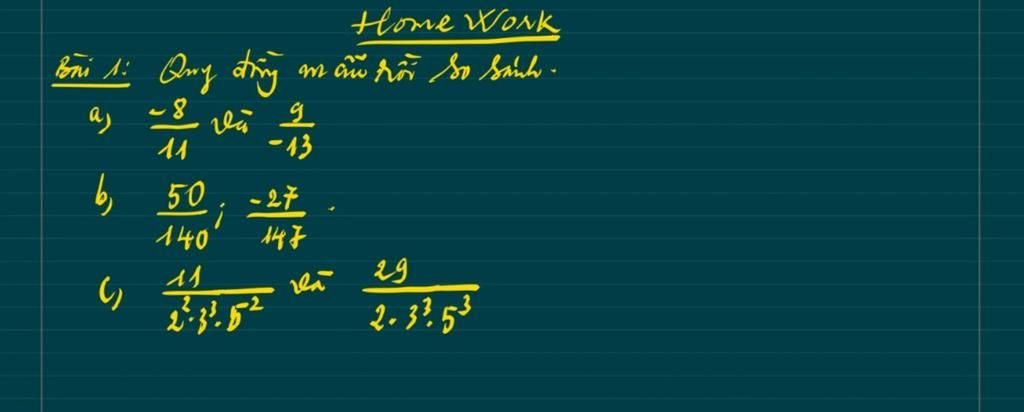 Home Work
Bài 1: Quy đồng mẫu rồi so sánh.
a) -8/11 và 9/-13
b) 50/140 ; -27/147 .
c) 11/2².3³.5² và 29/2.3³.5³